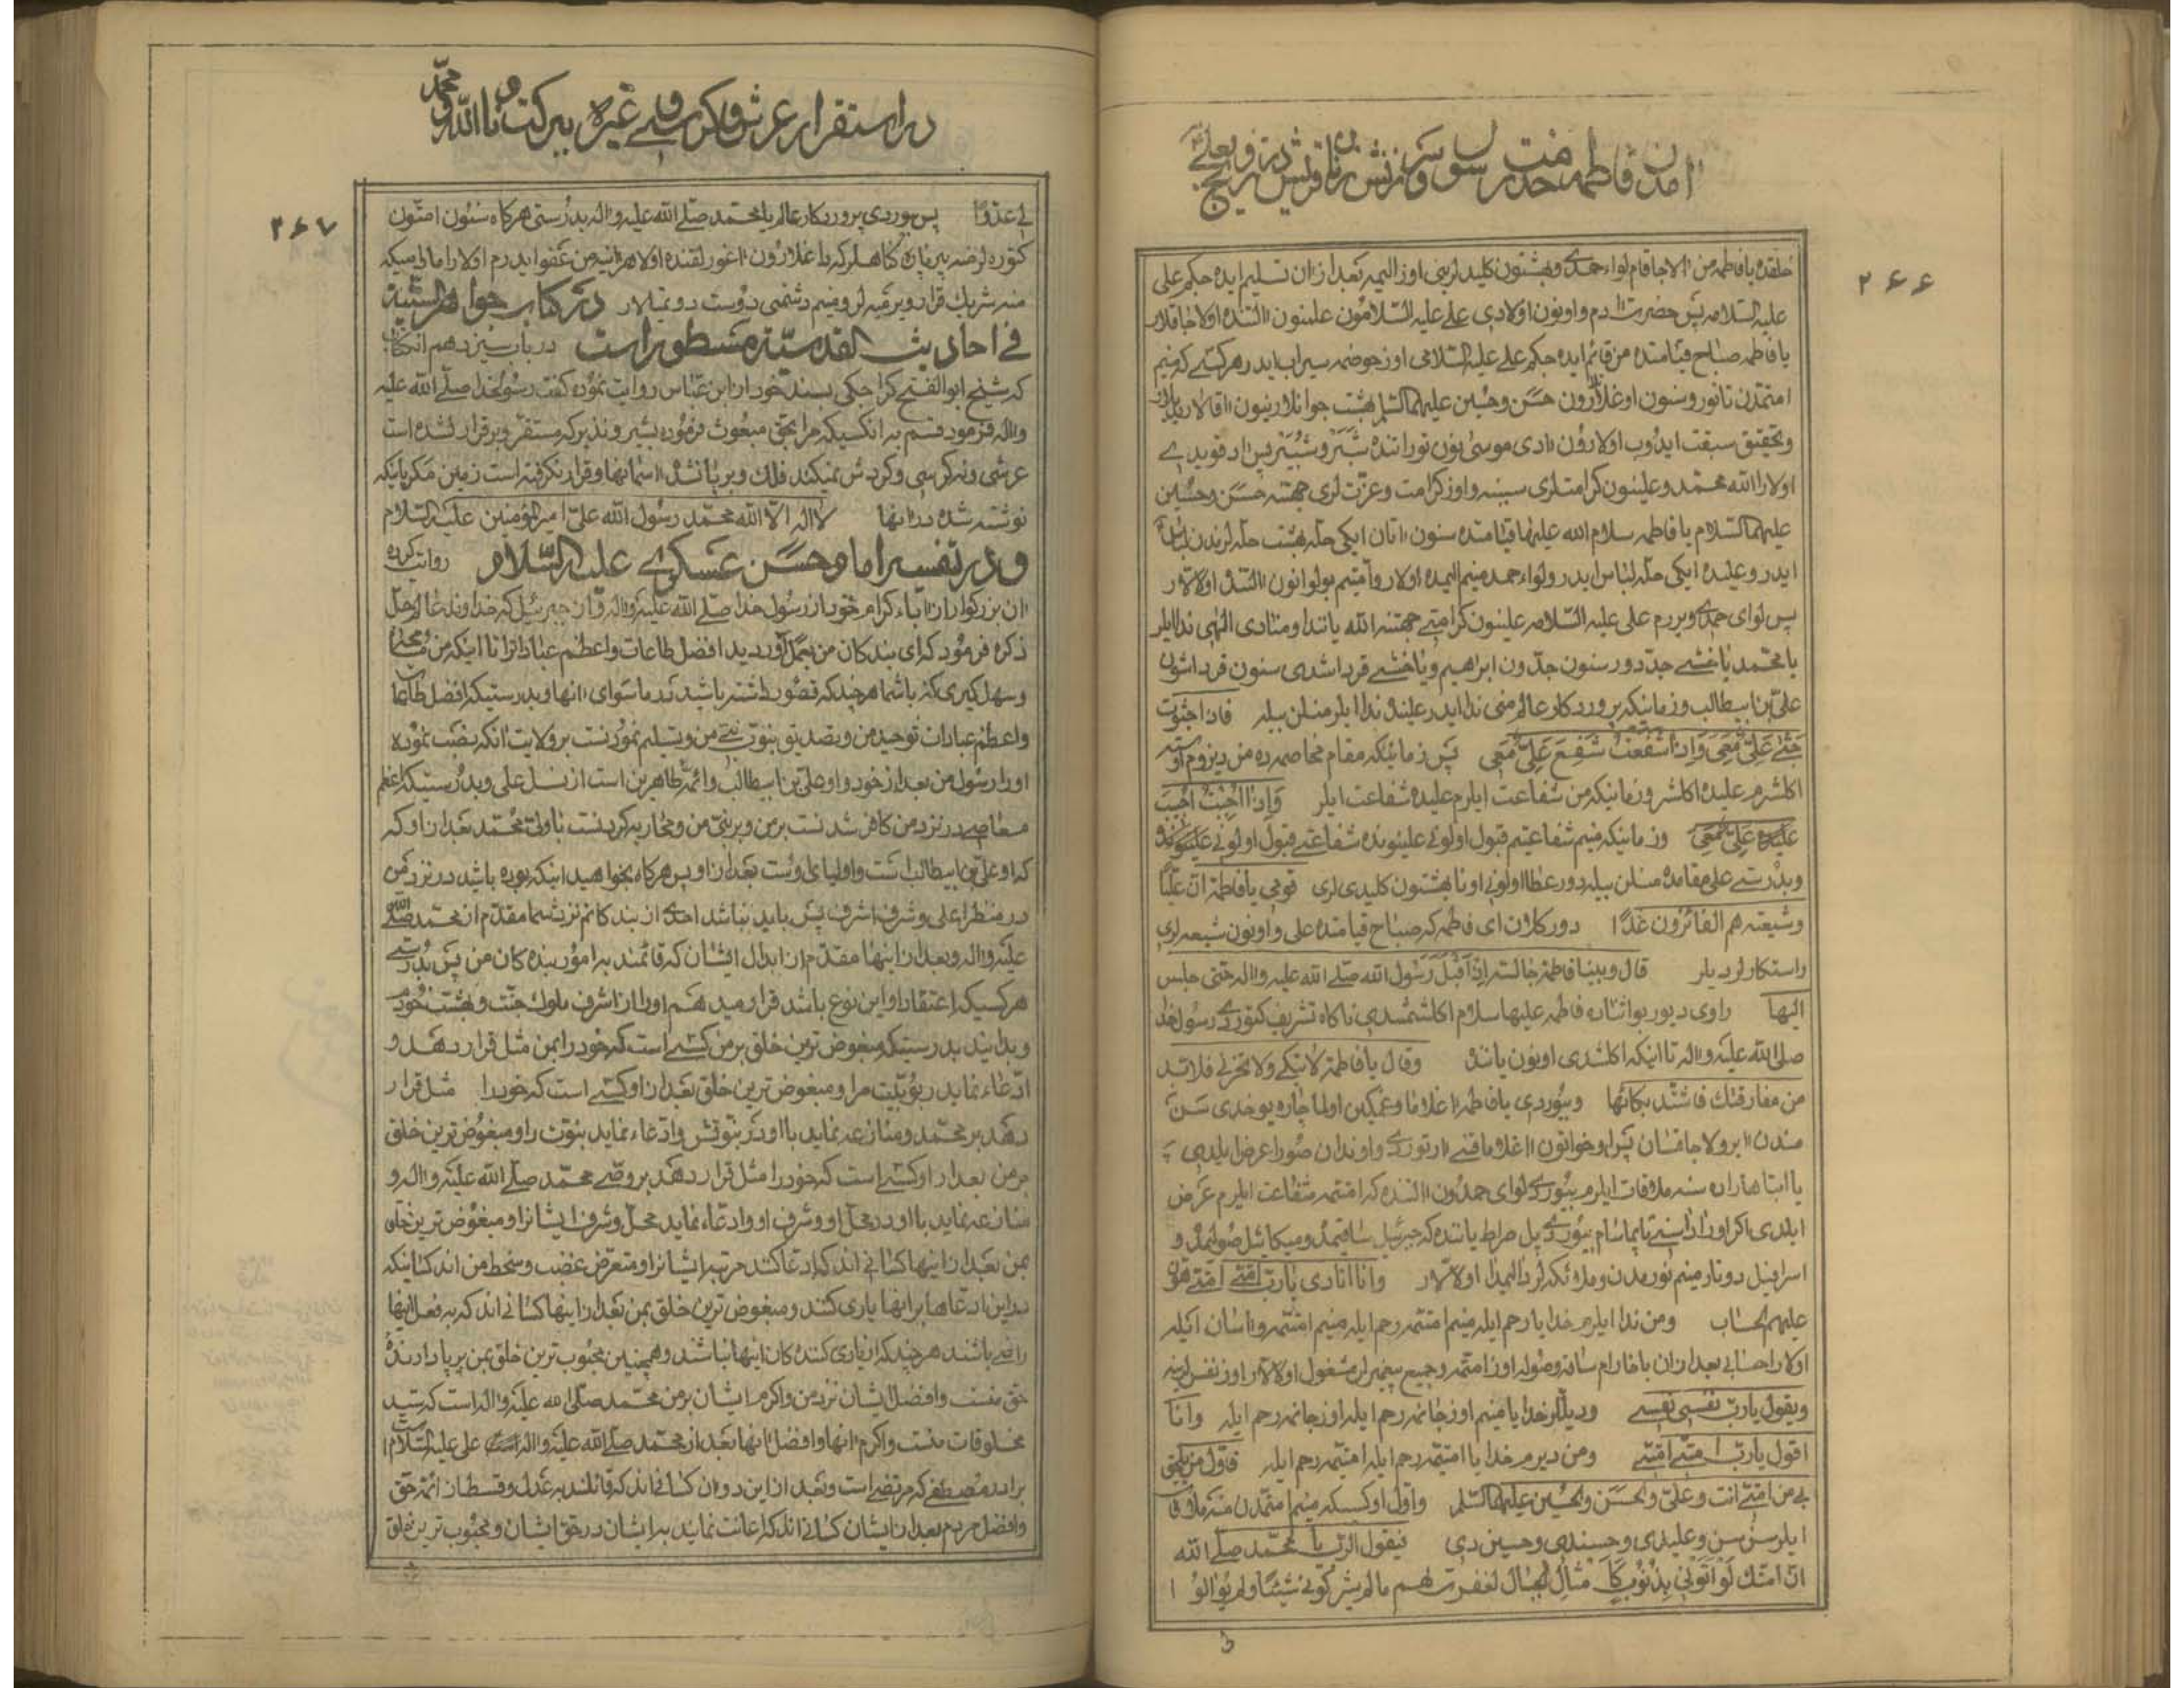 ۲۶۶
آمدن فاطمه خدمت رسول و سرزنش زنان قریش در تزویج بعلی
خلقده یا فاطمه من آلاجاقام لواء حمدی و بهشتون کلیدلرینی اوز الیمه بعد از آن تسلیم ایده جکم علی
علیه السلامه پس حضرت آدم و اونون اولادی علی علیه السلامون علمنون آلتنده اولاجاقلار
یا فاطمه صباح قیامتده من قائم ایده جکم علی علیه السلامی اوز حوضمه سیراب ایدر هر کسی که منیم
امتمدن تانور و سنون اوغلارون حسن و حسین علیهما السلم بهشت جوانلارینون آقالاریدیلار
و تحقیق سبقت ایدوب اولارون آدی موسی نون توراتنده شبر و شبیر پس آد قویدی
اولارا الله محمد و علینون کرامتلری سببنه و اوز کرامت و عزت لری جهتنه حسن و حسین
علیهما السلام یا فاطمه سلام الله علیها قیامتده سنون آتان ایکی حله بهشت حله لریندن لباس
ایدر و علیده ایکی حله لباس ایدر و لواء حمد منیم الیمده اولار و امتیم بو لوانون آلتنده اولالار
پس لوای حمدی ویررم علی علیه السلامه علینون کرامتی جهتنه الله یاننده و منادی الهی ندا ایلر
یا محمد یاخشی جد دور سنون جدون ابراهیم و یاخشی قرداشدی سنون قرداشون
علی بن ابیطالب و زمانیکه پروردکار عالم منی ندا ایدر علینی ندا ایلر منلن بیله فاذا جثوت
جثی علی معی و اذا شفعت شفع علی معی پس زمانیکه مقام مخاصمه ده من دیزوم اوسته
اکلشرم علیده اکلشر و زمانیکه من شفاعت ایلرم علیده شفاعت ایلر و اذا اجبت اجیب
علی معی و زمانیکه منیم شفاعتیم قبول اولونی علینوندا شفاعتی قبول اولونی
و بدرستی علی مقامده منلن بیله دور عطا اولونی اونا بهشتون کلیدی لری قومی یا فاطمة ان علیا
و شیعته هم الفائزون غدا دور کلان ای فاطمه که صباح قیامتده علی و اونون شیعه لری
راستکارلردیلر قال و بینا فاطمة جالسة اذ اقبل رسول الله صلی الله علیه و اله حتی جلس
الیها راوی دیور بو اثناده فاطمه علیها سلام اکلشمشدی ناکاه تشریف کتوردی رسول خدا
صلی الله علیه و اله تا اینکه اکلشدی اونون یاننده و قال یا فاطمة لا تبکی و لا تحزنی فلا بد
من مفارقتک فاشتد بکائها و بیوردی یا فاطمه آغلاما و غمکین اولما چاره یوخدی سن
مندن آیرولاجاقسان پس او خواتون آغلاماقنی آرتوردی و اوندان صورا عرض ایلدی
یا ابتا هاراده سنه ملاقات ایلرم بیوردی لوای حمدون آلتنده که امتمه شفاعت ایلرم عرض
ایلدی اکر اورادا سنی تاپماسام بیوردی پل صراط یاننده که جبرئیل ساقیمده و میکائیل صولیمده و
اسرافیل دوتار منیم نوریمدن و ملائکه لر دالیمدا اولالار و انا انادی یا رب امتی امتی هون
علیهم الحساب و من ندا ایلرم خدایا رحم ایله منیم امتمه رحم ایله منیم امتمه و آسان ایله
اولارا حسابی بعد از آن باخارام ساقه و صوله اوز امتمه و جمیع پیغمبرلر مشغول اولالار اوز نفس لرینه
و یقول یا رب نفسی نفسی و دیللر خدایا منیم اوز جانمه رحم ایله اوز جانمه رحم ایله و انا
اقول یا رب امتی امتی و من دیرم خدایا امتیمه رحم ایله امتیمه رحم ایله فاول من یلحق
بی من امتی انت و علی و الحسن و الحسین علیهما السلم و اول او کسیکه منیم امتمدن منه ملاقات
ایلر سن سن و علیدی و حسندی و حسین دی فیقول الرب یا محمد صلی الله
ان امتک لو اتونی بذنوب کامثال الجبال لغفرت لهم ما لم یشرکوا بی شیئا و لم یوالوا
۲۶۷
در استقرار عرش و کرسی و غیره ببرکت نام الله و محمد
لی عدوا پس بیوردی پروردکار عالم یا محمد صلی الله علیه و اله بدرستی هر کاه سنون امتون
کتوره لر منه بیر پاره کناهلر که داغلارون آغورلقنده اولا هر آینه من عفو ایدرم اولارا مادامیکه
منه شریک قرار ویرمیه لر و منیم دشمنمی دوست دوتمیلار در کتاب جواهر السنیة
فی احادیث القدسیة مسطور است در باب سیزدهم آن کتاب
که شیخ ابو الفتح کراجکی بسند خود از ابن عباس روایت نموده کفت رسول خدا صلی الله علیه
و اله فرمود قسم به آنکسیکه مرا بحق مبعوث فرموده بشیر و نذیر که مستقر و برقرار نشده است
عرشی و نه کرسی و کردش نمیکند فلک و برپا نشده آسمانها و قرار نکرفته است زمین مکر باینکه
نوشته شده در آنها لا اله الا الله محمد رسول الله علی امیر المؤمنین علیه السلام
و در تفسیر امام حسن عسکری علیه السلام روایت کرده
آن بزرکوار از آباء کرام خود از رسول خدا صلی الله علیه و اله و آن جبرئیل که خداوند عالم جل
ذکره فرمود که ای بندکان من بعمل آورید افضل طاعات و اعظم عبادات را تا اینکه من مسامحه
و سهل کیری کنم با شما هر چند که قصور داشته باشید در ماسوای آنها و بدرستیکه افضل طاعات
و اعظم عبادات توحید من و تصدیق نبوت نبی من و تسلیم نمودنست بر ولایت آنکه نصب نموده
او را رسول من بعد از خود و او علی بن ابیطالب و ائمه طاهرین است از نسل علی و بدرستیکه اعظم
معاصی در نزد من کافر شدنست بمن و بر نبی من و محاربه کردنست با ولی محمد بعد از او که
که او علی بن ابیطالب است و اولیای اوست بعد از او پس هر کاه بخواهید اینکه بوده باشید در نزد من
در منظر اعلی و شرف اشرف پس باید نباشد احدی از بندکانم نزد شما مقدم از محمد صلی الله
علیه و اله و بعد از اینها مقدم از ابدال ایشان که قائمند به امور بنده کان من پس بدرستی
هر کسیکه اعتقاد او این نوع باشد قرار میدهم او را از اشرف ملوک جنت و بهشت خودم
و بدانید بدرستیکه مبغوض ترین خلق بر من کسی است که خود را بمن مثل قرار دهد و
ادعاء نماید ربوبیت مرا و مبغوض ترین خلق بعد از او کسی است که خود را مثل قرار
دهد بر محمد و منازعه نماید با او در نبوتش و ادعاء نماید نبوت را و مبغوض ترین خلق
بر من بعد از او کسی است که خود را مثل قرار دهد بر وصی محمد صلی الله علیه و اله و
منازعه نماید با او در محل او و شرف او و ادعاء نماید محل و شرف ایشانرا و مبغوض ترین خلق
بمن بعد از اینها کسانی اند که ادعا کنند مرتبه ایشانرا و متعرض غضب و سخط من اند کسانیکه
در این ادعاها بر آنها یاری کنند و مبغوض ترین خلق بمن بعد از اینها کسانی اند که به فعل اینها
راضی باشند هر چند که از یاری کننده کان اینها نباشند و همچنین محبوب ترین خلق بمن برپا دارنده
حق منست و افضل ایشان نزد من و اکرم ایشان بر من محمد صلی الله علیه و اله است که سید
مخلوقات منست و اکرم آنها و افضل آنها بعد از محمد صلی الله علیه و اله علی علیه السلام است
برادر مصطفی که مرتضی است و بعد از این دو آن کسانی اند که قائلند به عدل و قسط از ائمه حق
و افضل مردم بعد از ایشان کسانی اند که اعانت نماید به ایشان در حق ایشان و محبوب ترین خلق